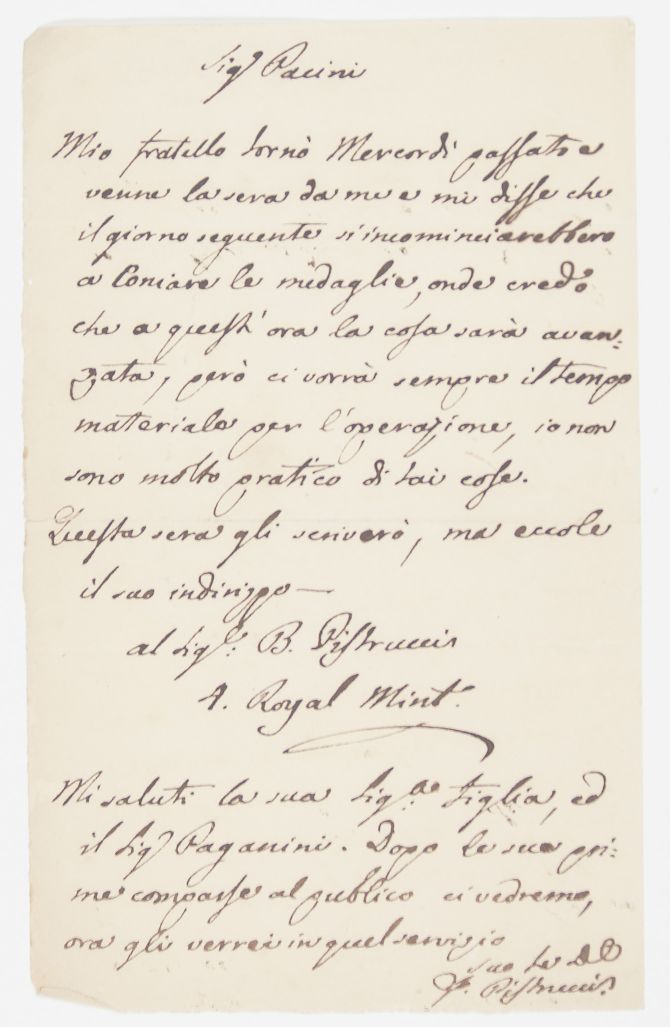 Sigr Pacini
Mio fratello tornò Mercordì passato e
venne la sera da me e mi disse che
il giorno seguente s'incomincierebbero
a Coniare le medaglie, onde credo
che a quest'ora la cosa sarà avan-
zata, però ci vorrà sempre il tempo
materiale per l'operazione, io non
sono molto pratico di tai cose.
Questa sera gli scriverò, ma eccole
il suo indirizzo —
al Sigr: B. Pistrucci
4. Royal Mint.
Mi saluti la sua Sigra Figlia, ed
il Sigr Paganini. Dopo le sue pri-
me comparse al publico ci vedremo,
ora gli verrei in quel servizio
suo
F. Pistrucci